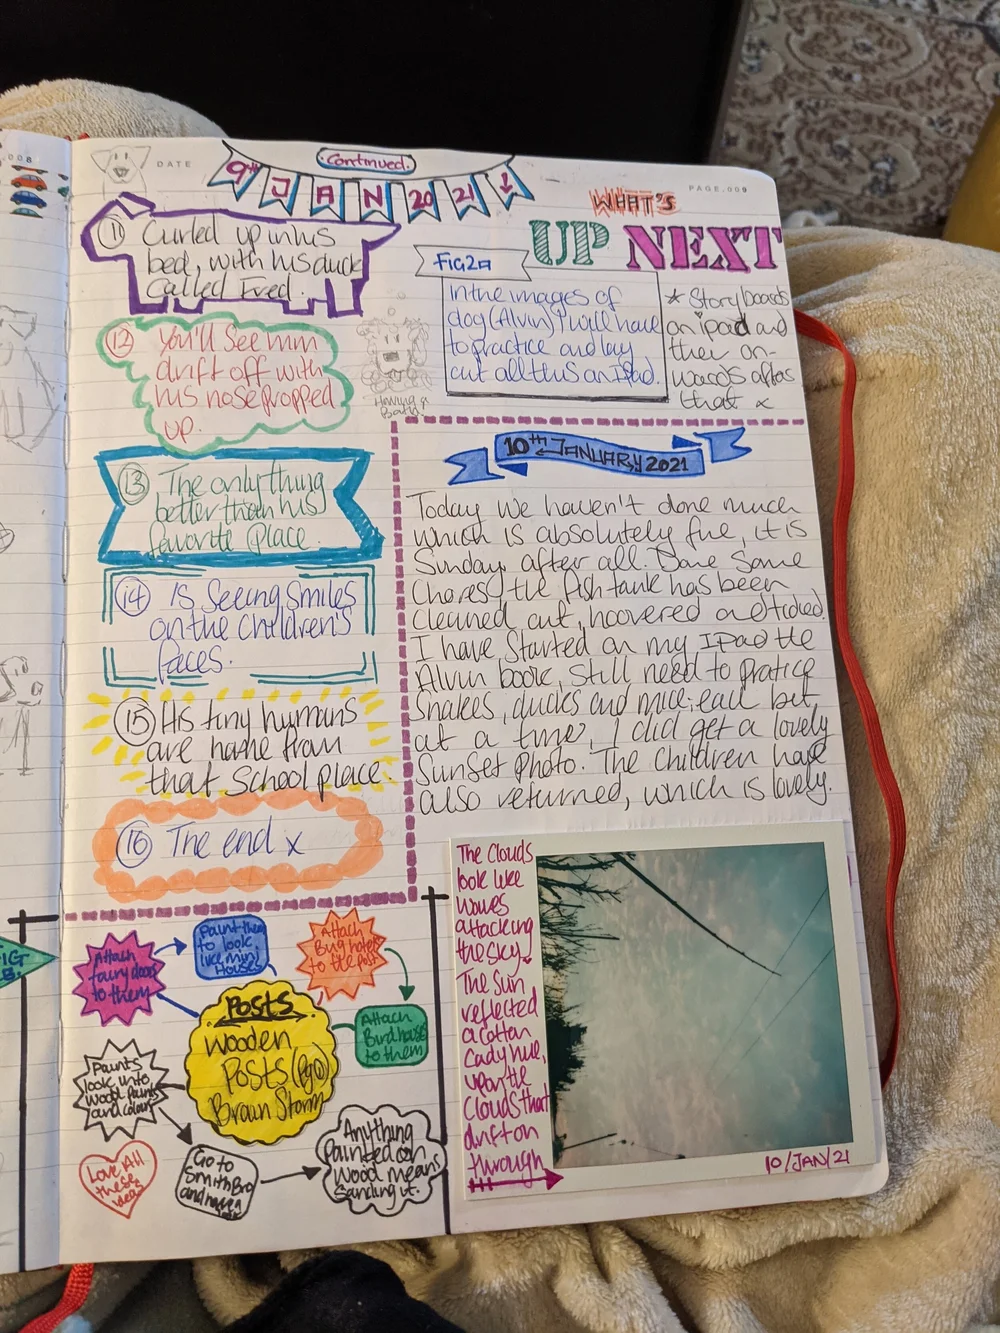 .008
DATE
Continued.
9th JAN 2021
PAGE.009
11 Curled up in his
bed, with his duck
called Fred.
12 You'll see him
drift off with
his nose propped
up.
Having a
Bath
13 The only thing
better than his
favorite place.
14 Is seeing smiles
on the children's
faces.
15 His tiny humans
are home from
that school place.
16 The end x
WHAT'S
UP NEXT
FIG 2a
In the images of
dog (Alvin) I will have
to practice and lay
out all this on Ipad.
* Storyboards
on ipad and
then on-
wards after
that x
10TH JANUARY 2021
Today we haven't done much
which is absolutely fine, it is
Sunday after all. Done some
chores, the fish tank has been
cleaned out, hoovered and tidied.
I have started on my IPad the
Alvin book, still need to pratice
snakes, ducks and mice; each bit,
at a time, I did get a lovely
sunset photo. The children have
also returned, which is lovely.
Attach
fairy doors
to them
Paint them
to look
like mini
Houses
Attach
Bug hotels
to the post
Attach
Bird houses
to them
Posts
Wooden
Posts (Pg6)
Brain Storm
Paints
look into
Wood Paints
and colour
Love All
these
ideas
Go to
Smith Bro
and have a
look
Anything
Painted on
Wood means
Sanding it.
The clouds
look like
waves
attacking
the sky.
The sun
reflected
a cotton
cady hue,
upon the
clouds that
drift on
through
10/JAN/21